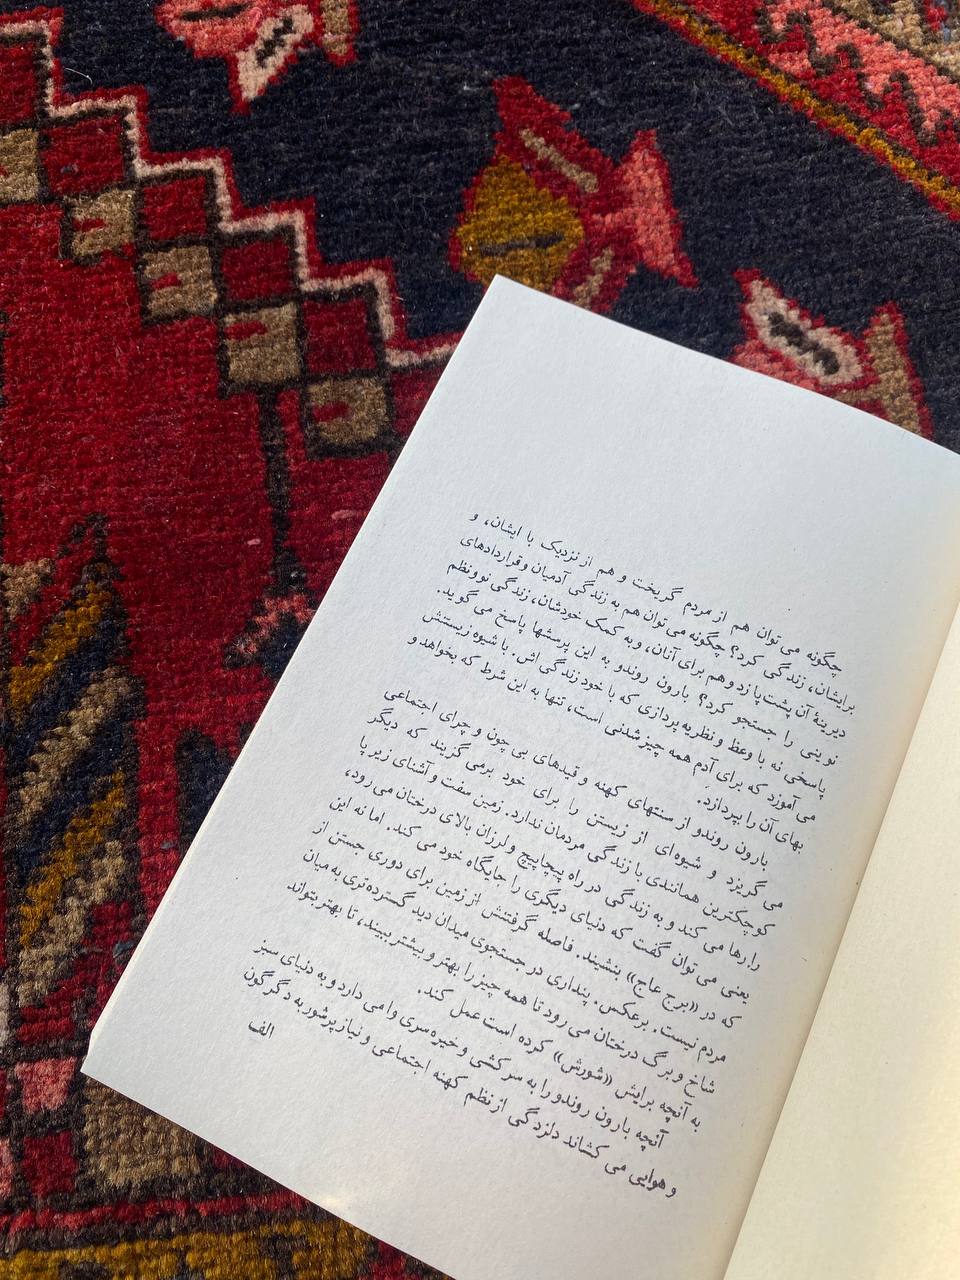 چگونه می توان هم از مردم گریخت و هم از نزدیک با ایشان، و
برایشان، زندگی کرد؟ چگونه می توان هم به زندگی آدمیان و قراردادهای
دیرینهٔ آن پشت پا زد و هم برای آنان، و به کمک خودشان، زندگی نو و نظم
نوینی را جستجو کرد؟ بارون روندو به این پرسشها پاسخ می گوید.
پاسخی نه با وعظ و نظریه پردازی که با خود زندگی اش. با شیوه زیستنش
می آموزد که برای آدم همه چیز شدنی است، تنها به این شرط که بخواهد و
بهای آن را بپردازد.
بارون روندو از سنتهای کهنه و قیدهای بی چون و چرای اجتماعی
می گریزد و شیوه ای از زیستن را برای خود برمی گزیند که دیگر
کوچکترین همانندی با زندگی مردمان ندارد. زمین سفت و آشنای زیر پا
را رها می کند و به زندگی در راه پیچاپیچ و لرزان بالای درختان می رود،
یعنی می توان گفت که دنیای دیگری را جایگاه خود می کند. اما نه این
که در «برج عاج» بنشیند. فاصله گرفتنش از زمین برای دوری جستن از
مردم نیست. برعکس. پنداری در جستجوی میدان دید گسترده تری به میان
شاخ و برگ درختان می رود تا همه چیز را بهتر و بیشتر ببیند، تا بهتر بتواند
به آنچه برایش «شورش» کرده است عمل کند.
آنچه بارون روندو را به سرکشی و خیره سری وامی دارد و به دنیای سبز
و هوایی می کشاند دلزدگی از نظم کهنه اجتماعی و نیاز پرشور به دگرگون
الف